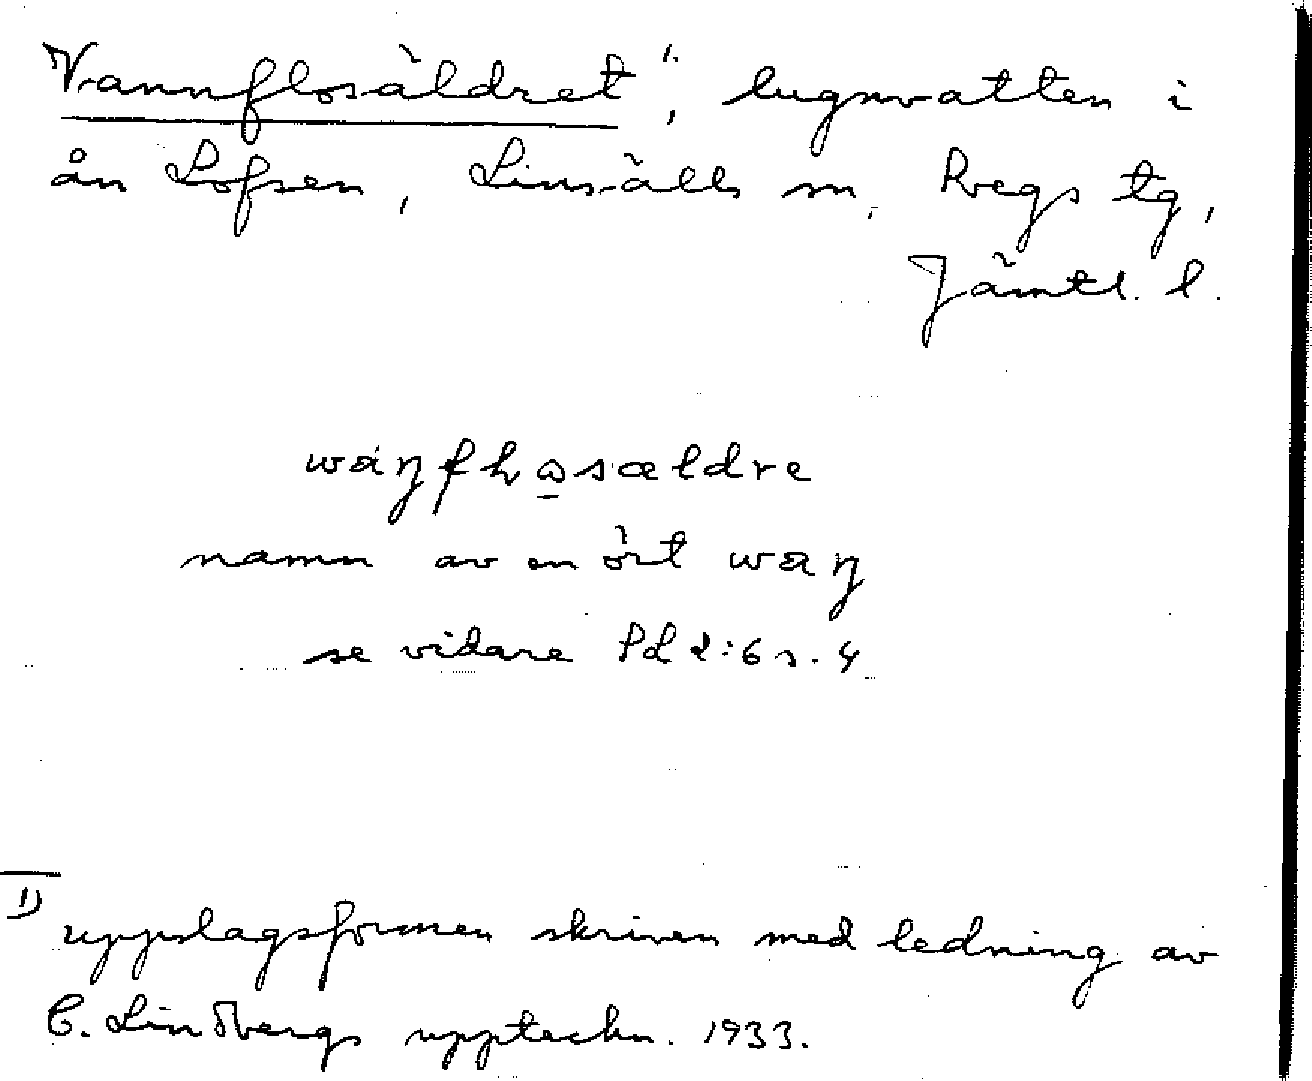 Vannflosäldret¹⁾, lugnvatten i
ån Lofsen, Linsälls sn, Hregs tg,
Jämtl. l.
waŋfłɷsældre
namn av en ört waŋ
se vidare Pd 2:6 s. 4
1) uppslagsformen skriven med ledning av
C. Lindbergs uppteckn. 1933.